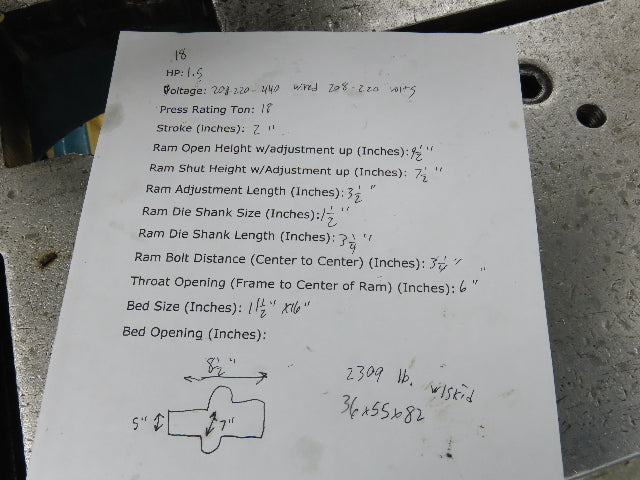 18
HP: 1.5
Voltage: 208-220-440 wired 208-220 volts
Press Rating Ton: 18
Stroke (Inches): 2"
Ram Open Height w/adjustment up (Inches): 9 1/2"
Ram Shut Height w/Adjustment up (Inches): 7 1/2"
Ram Adjustment Length (Inches): 3 1/2"
Ram Die Shank Size (Inches): 1 1/2"
Ram Die Shank Length (Inches): 3 1/4"
Ram Bolt Distance (Center to Center) (Inches): 3 1/4"
Throat Opening (Frame to Center of Ram) (Inches): 6"
Bed Size (Inches): 11 1/2" x16"
Bed Opening (Inches):
8 1/2"
5"
7"
2309 lb. w/skid
36x55x82